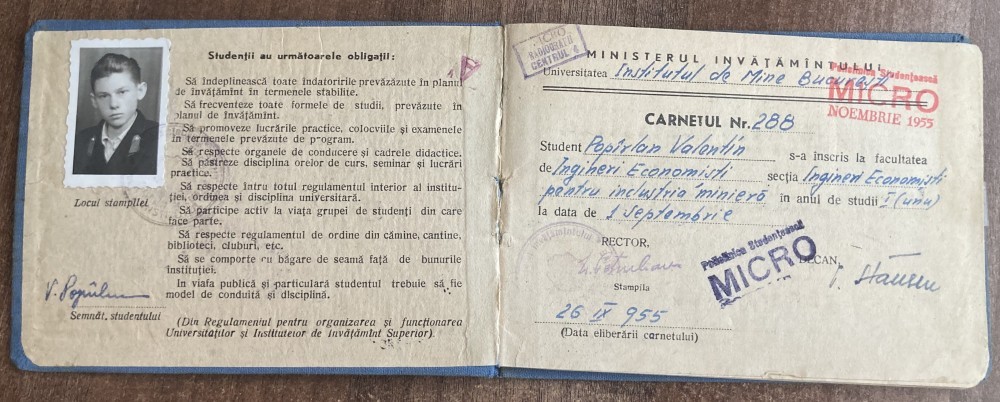 Studenții au următoarele obligații:
Să îndeplinească toate îndatoririle prevăzăzute în planul
de învățămînt în termenele stabilite.
Să frecventeze toate formele de studii, prevăzute în
planul de învățămînt.
Să promoveze lucrările practice, colocviile și examenele
în termenele prevăzute de program.
Să respecte organele de conducere și cadrele didactice.
Să păstreze disciplina orelor de curs, seminar și lucrări
practice.
Să respecte întru totul regulamentul interior al institu-
ției, ordinea și disciplina universitară.
Să participe activ la viața grupei de studenți din care
face parte.
Să respecte regulamentul de ordine din cămine, cantine,
biblioteci, cluburi, etc.
Să se comporte cu băgare de seamă față de bunurile
instituției.
În viața publică și particulară studentul trebuie să fie
model de conduită și disciplină.
(Din Regulamentul pentru organizarea și funcționarea
Universităților și Institutelor de învățămînt Superior).
Locul stampilei
Semnăt. studentului
MICRO
RADIOGRAFII
CENTRUL 4
MINISTERUL INVĂȚĂMÎNTULUI
Universitatea Institutul de Mine București
Policlinica Studențească
MICRO
NOEMBRIE 1955
CARNETUL Nr. 288
Student Popîrlan Valentin s-a înscris la facultatea
de Ingineri Economiști secția Ingineri Economiști
pentru industria minieră în anul de studii I (unu)
la data de 1 Septembrie
RECTOR,
DECAN,
Policlinica Studențească
MICRO
Stampila
26 IX 955
(Data eliberării carnetului)